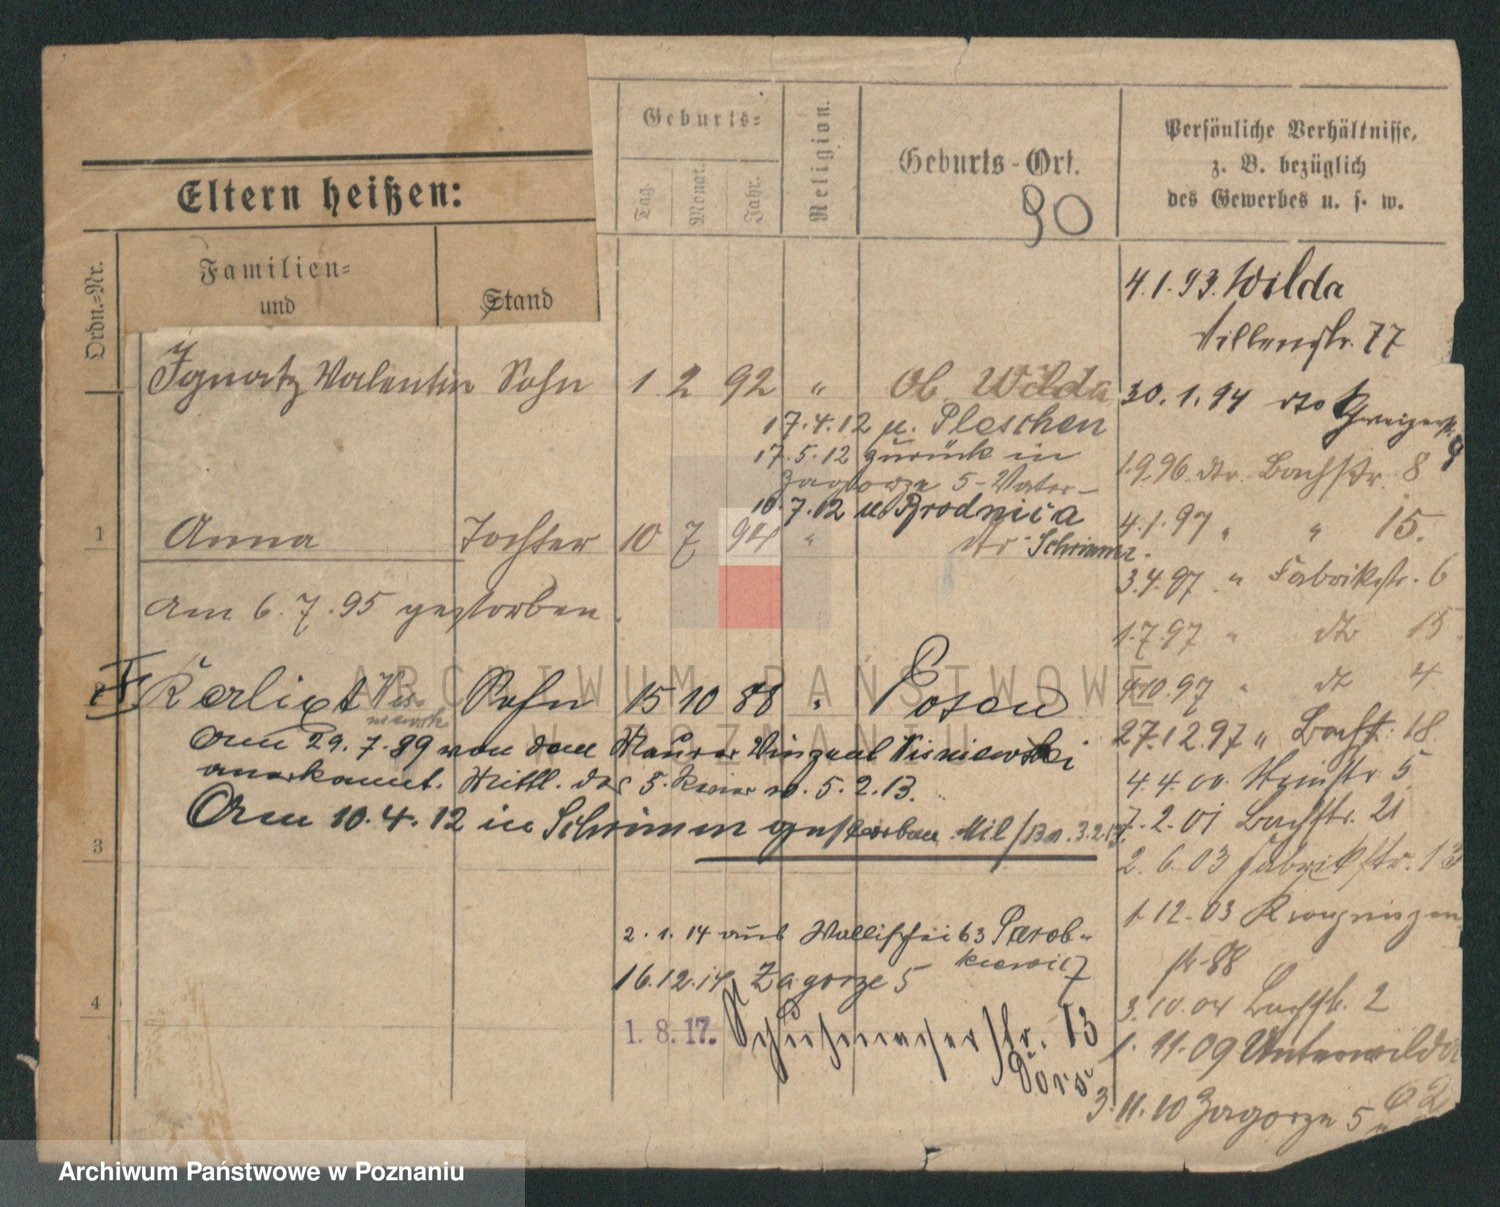 Eltern heißen:
Ordn.-Nr.
Familien-
und
Stand
Geburts-
Tag.
Monat.
Jahr.
Religion.
Geburts-Ort.
90
Persönliche Verhältnisse,
z. B. bezüglich
des Gewerbes u. s. w.
Ignatz Valentin Sohn 1 2 92 " Ob. Wilda
17.4.12 n. Pleschen
17.5.12 zurück in
Zagorze 5 - Vater -
10.7.12 n. Brodnica
Schrimm
1
Anna Tochter 10 7 94 " dto
am 6.7.95 gestorben.
Kalixt Wis-
niewski
Sohn 15 10 88 " Posen
Am 29.7.89 von dem Maurer Vinzent Wisniewski
anerkannt. Mittl. des 5. Revier v. 5.2.13.
Am 10.4.12 in Schrimm gestorben. Mil/Bn. 3.2.13.
3
2.1.14 aus Wallischei 63 Parob-
kiewicz
16.12.14 Zagorze 5
4
1.8.17. Schuhmacherstr. 13
4.1.93. Wilda
77
30.1.94 dto
9
1.9.96. dto. Bachstr. 8
4.1.97 " " 15.
3.4.97 " Fabrikstr. 6
1.7.97 " dto 15.
4.10.97 " dto 4
27.12.97 " Bachstr. 18.
4.4.00. 5
7.2.01 Bachstr. 21
2.6.03 Fabrikstr. 13
1.12.03 Kronprinzen
str. 88
3.10.04 Bachstr. 2
1.11.09 Unterwilda
62
3.11.10 Zagorze 5
ARCHIWUM PAŃSTWOWE
W POZNANIU
Archiwum Państwowe w Poznaniu